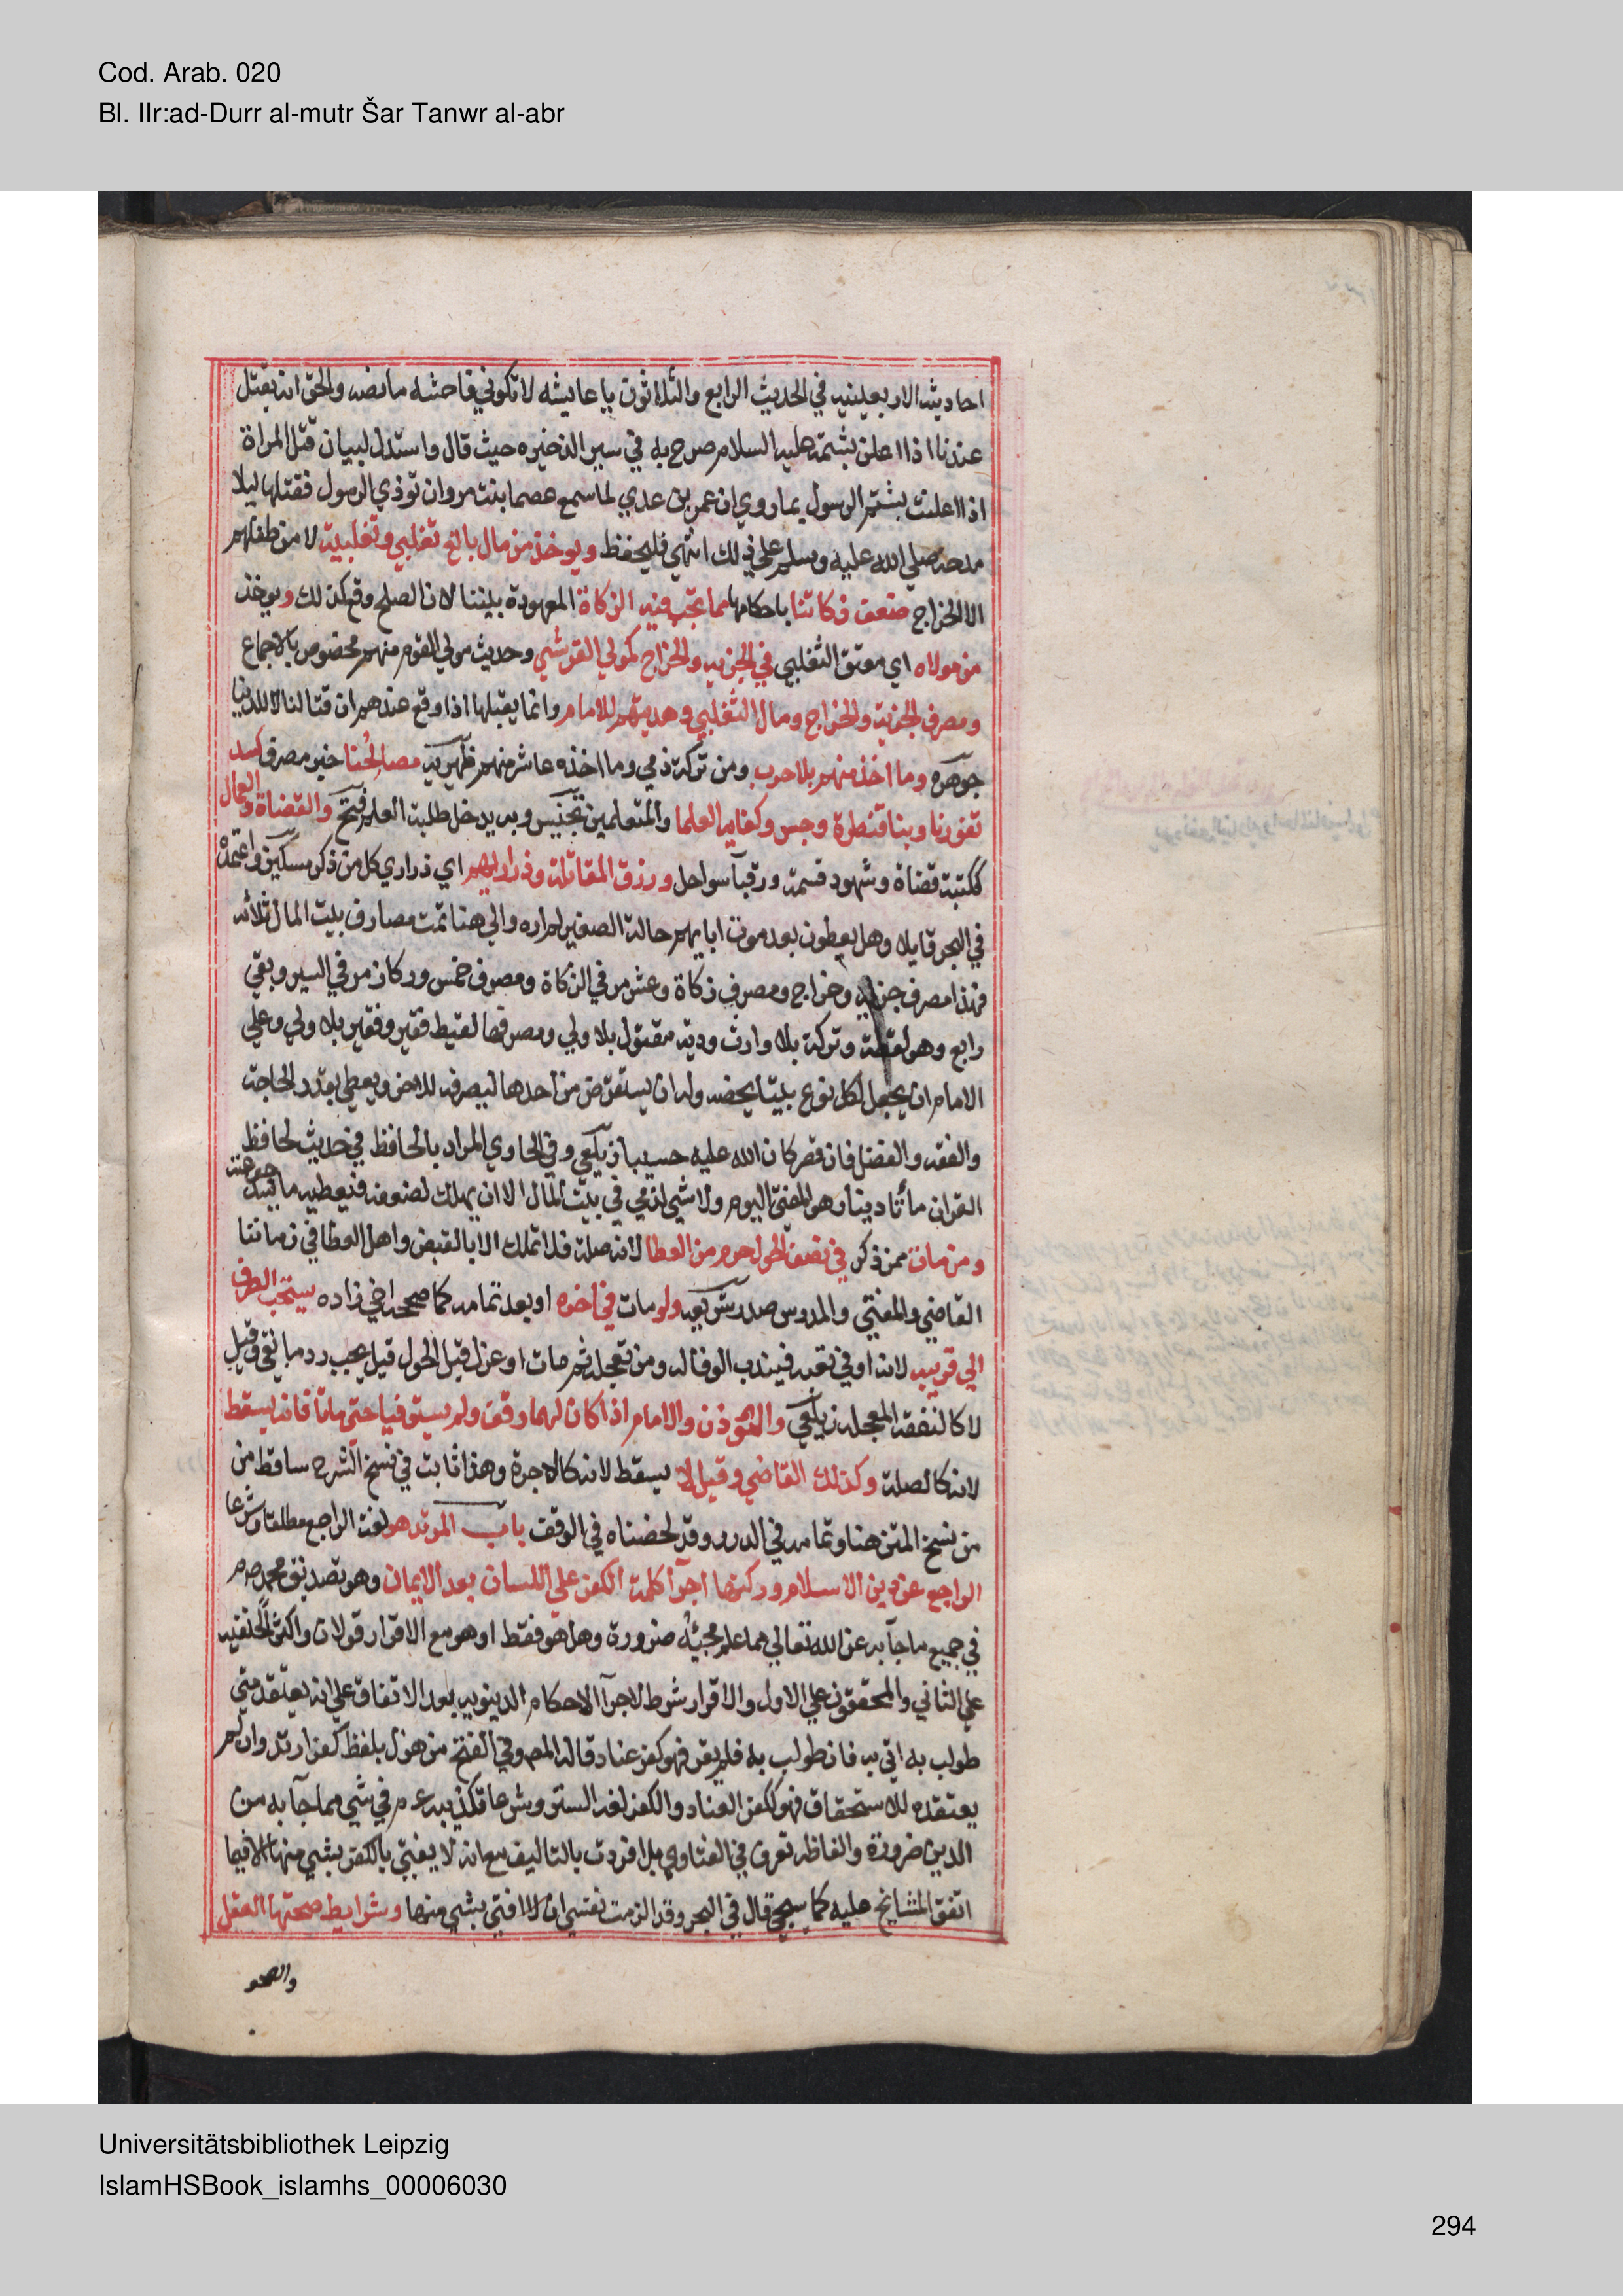 Cod. Arab. 020
Bl. IIr:ad-Durr al-mutr Šar Tanwr al-abr
احاديثه الاربعينيه في الحديث الرابع والثلاثون يا عايشه لا تكوني فاحشه ما نصه والحق انه يقتل
عندنا اذا اعلن بشتمه عليه السلام صرح به في سير الذخيره حيث قال واستدل لبيان قتل المراة
اذا اعلنت بشتم الرسول بما روي ان عمر بن عدي لما سمع عصما بنت مروان توذي الرسول فقتلها ليلا
مدحه صلي الله عليه وسلم علي ذلك انتهي فليحفظ ويوخذ من مال بالغ تغلبي وتغلبية لا من طفلهم
الا الخراج ضعف زكاتنا باحكامها مما تجب فيه الزكاة المعهودة بيننا لان الصلح وقع كذلك ويوخذ
من مولاه اي معتق التغلبي في الجزيه والخراج كمولي القرشي وحديث مولي القوم منهم مخصوص بالاجماع
ومصرف الجزية والخراج ومال التغلبي وهديتهم للامام وانما يقبلها اذا وقع عندهم ان قتالنا لا للدنيا
جوهره وما اخذ منهم بلا حرب ومن تركة ذمي وما اخذه عاشر منهم ظهيريه مصالحنا خبر مصرف كسد
ثغورنا وبنا قنطرة وجسر وكفاية العلما والمتعلمين تجنيس وبه يدخل طلبة العلم فتح والقضاة والعمال
ككتبة قضاة وشهود قسمة ورقبآ سواحل ورزق المقاتلة وذراريهم اي ذراري كل من ذكر مسكين واعتمده
في البحر قايلا وهل يعطون بعد موت ابايهم حالة الصغر لم اره والي هنا تمت مصارف بيت المال ثلاثه
فهذا مصرف جزيه وخراج ومصرف زكاة وعشر مر في الزكاة ومصرف خمس وركاز مر في السير وبقي
رابع وهو لقطة وتركة بلا وارث ودية مقتول بلا ولي ومصرفها لقيط فقير وفقير بلا ولي وعلي
الامام ان يجعل لكل نوع بيتا يخصه وله ان يستقرض من احدها ليصرفه للاخر ويعطي بقدر الحاجة
والفقه والفضل فان قصر كان الله عليه حسيبا زيلعي وفي الحاوي المراد بالحافظ في حديث لحافظ
القران مأتا دينار هو المفتي اليوم ولا شي لذمي في بيت المال الا ان يهلك لضعفه فيعطيه ما يسد جوعته
ومن مات ممن ذكر في نصف الحول حرم من العطا لانه صلة فلا تملك الا بالقبض واهل العطا في زماننا
القاضي والمفتي والمدرس صدر شريعه ولو مات في اخره او بعد تمامه كما صححه اخي زاده يستحب الصرف
الي قريبه لانه اوفي تعبه فيندب الوفا له ومن تعجله ثم مات او عزل قبل الحول قيل يجب رد ما بقي وقيل
لا كالنفقه المعجله زيلعي والموذن والامام اذا كان لهما وقف ولم يستوفيا حتي ماتا فانه يسقط
لانه كالصلة وكذلك القاضي وقيل لا يسقط لانه كالاجرة وهذا ثابت في نسخ الشرح ساقط من
من نسخ المتن هنا وتمامه في الدرر وقد لخصناه في الوقف باب المرتد هو لغة الراجع مطلقا وشرعا
الراجع عن دين الاسلام وركنها اجرآ كلمة الكفر علي اللسان بعد الايمان وهو تصديق محمد صم
في جميع ما جآ به عن الله تعالي مما علم مجيئه ضرورة وهل هو فقط او هو مع الاقرار قولان واكثر الحنفيه
علي الثاني والمحققون علي الاول والاقرار شرط لاجرآ الاحكام الدينويه بعد الاتفاق علي انه يعتقد متي
طولب به اتي به فان طولب به فلم يقر فهو كفر عناد قاله المصم وفي الفتح من هزل بلفظ كفر ارتد وان لم
يعتقده للاستحقاق فهو ككفر العناد والكفر لغة الستر وشرعا تكذيبه عم في شي مما جآ به من
الدين ضرورة والفاظه تعرف في الفتاوي بل افردت بالتاليف مع انه لا يفتي بالكفر بشي منها الا فيما
اتفق المشايخ عليه كما سيجي قال في البحر وقد الزمت نفسي ان لا افتي بشي منها وشرايط صحتها العقل
والصحو
Universitätsbibliothek Leipzig
IslamHSBook_islamhs_00006030
294